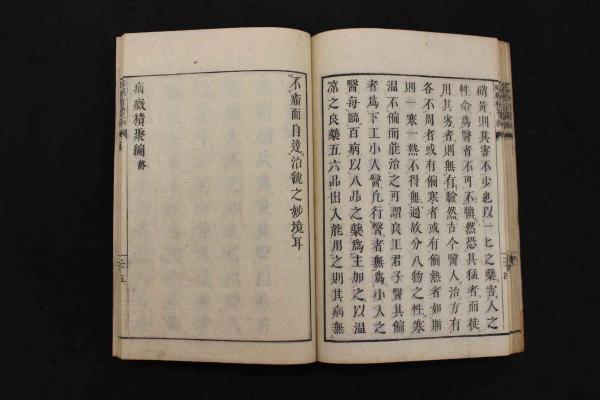 硝黄則其害不少也以一匕之藥害人之
性命爲醫者不可不愼然恐其猛者而徒
用其劣者則無有驗然古今醫人治方有
各不周者或有偏寒者或有偏熱者如斯
則一寒一熱不得無過故分八物之性寒
温不偏而能治之可謂良工君子醫其偏
者爲下工小人醫凢行醫者無爲小人之
醫每臨百病以八品之藥爲主加之以温
凉之良藥五六品出入能用之則其病無
不瘉而自達治術之妙境耳
病癥積聚編 終